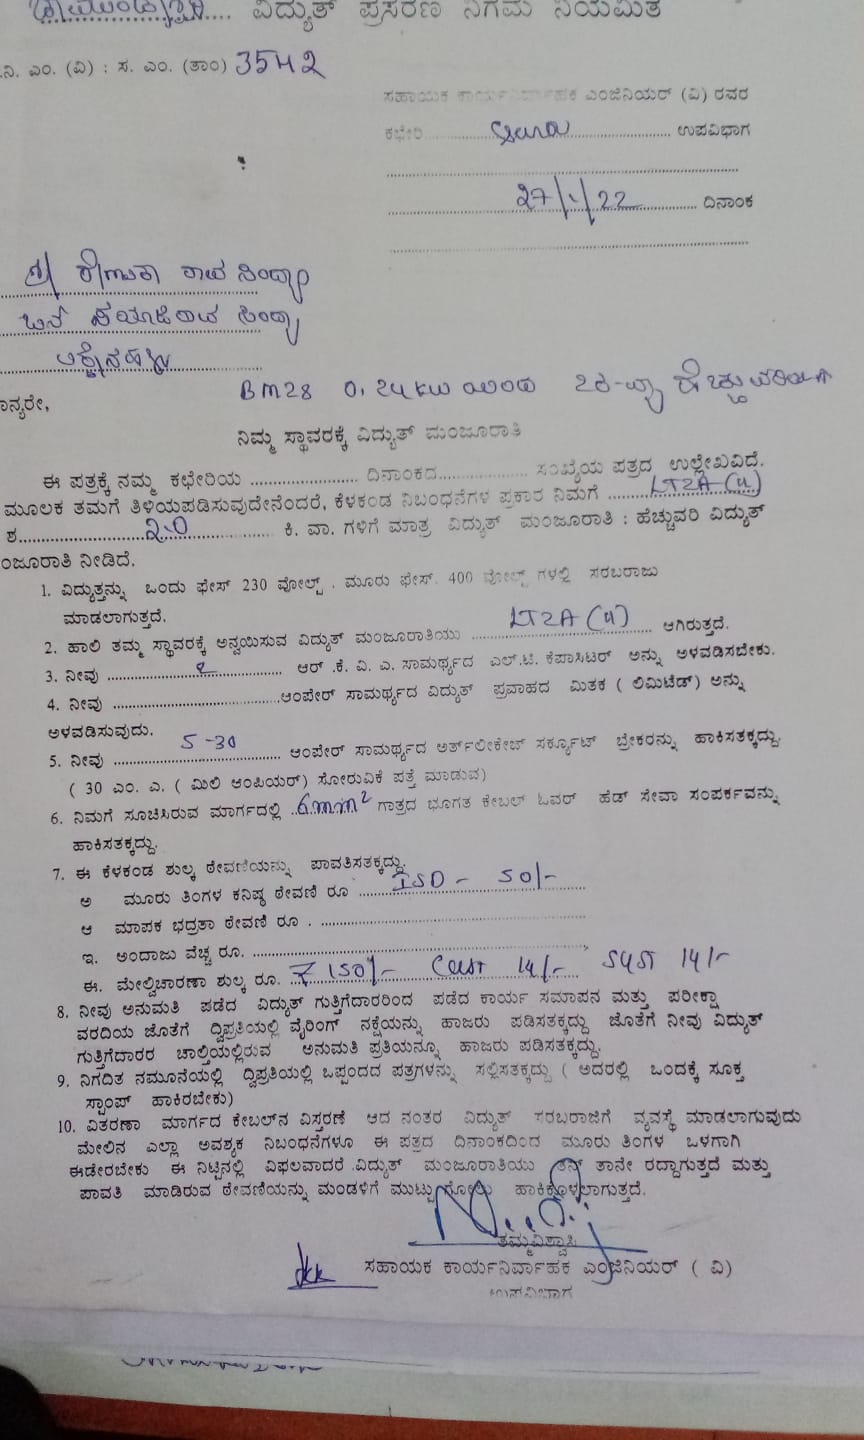 ವಿದ್ಯುತ್ ಪ್ರಸರಣ ನಿಗಮ ನಿಯಮಿತ
.ನಿ. ಎಂ. (ವಿ) : ಸ. ಎಂ. (ತಾಂ) 3542
ಸಹಾಯಕ ಕಾರ್ಯನಿರ್ವಾಹಕ ಎಂಜಿನಿಯರ್ (ವಿ) ರವರ
ಕಛೇರಿ ........ ಉಪವಿಭಾಗ
27/1/22 ದಿನಾಂಕ
ಶ್ರೀ
BM28 0.24KW ಯಿಂದ
ಾನ್ಯರೇ,
ನಿಮ್ಮ ಸ್ಥಾವರಕ್ಕೆ ವಿದ್ಯುತ್ ಮಂಜೂರಾತಿ
ಈ ಪತ್ರಕ್ಕೆ ನಮ್ಮ ಕಛೇರಿಯ ........ ದಿನಾಂಕದ........ ಸಂಖ್ಯೆಯ ಪತ್ರದ ಉಲ್ಲೇಖವಿದೆ.
ಮೂಲಕ ತಮಗೆ ತಿಳಿಯಪಡಿಸುವುದೇನೆಂದರೆ, ಕೆಳಕಂಡ ನಿಬಂಧನೆಗಳ ಪ್ರಕಾರ ನಿಮಗೆ LT2A-(ii)
ಶ........ 2.0 ........ ಕಿ. ವಾ. ಗಳಿಗೆ ಮಾತ್ರ ವಿದ್ಯುತ್ ಮಂಜೂರಾತಿ : ಹೆಚ್ಚುವರಿ ವಿದ್ಯುತ್
ಂಜೂರಾತಿ ನೀಡಿದೆ.
1. ವಿದ್ಯುತ್ತನ್ನು ಒಂದು ಫೇಸ್ 230 ವೋಲ್ಟ್ . ಮೂರು ಫೇಸ್. 400 ವೋಲ್ಟ್ ಗಳಲ್ಲಿ ಸರಬರಾಜು
ಮಾಡಲಾಗುತ್ತದೆ.
2. ಹಾಲಿ ತಮ್ಮ ಸ್ಥಾವರಕ್ಕೆ ಅನ್ವಯಿಸುವ ವಿದ್ಯುತ್ ಮಂಜೂರಾತಿಯು LT2A (ii) ಆಗಿರುತ್ತದೆ.
3. ನೀವು ........ ಆರ್ .ಕೆ. ವಿ. ಎ. ಸಾಮರ್ಥ್ಯದ ಎಲ್.ಟಿ. ಕೆಪಾಸಿಟರ್ ಅನ್ನು ಅಳವಡಿಸಬೇಕು.
4. ನೀವು ........ಆಂಪೇರ್ ಸಾಮರ್ಥ್ಯದ ವಿದ್ಯುತ್ ಪ್ರವಾಹದ ಮಿತಕ ( ಲಿಮಿಟೆಡ್) ಅನ್ನು
ಅಳವಡಿಸುವುದು.
5. ನೀವು 5-30 ಆಂಪೇರ್ ಸಾಮರ್ಥ್ಯದ ಅರ್ತ್‌ಲೀಕೇಜ್ ಸರ್ಕ್ಯೂಟ್ ಬ್ರೇಕರನ್ನು ಹಾಕಿಸತಕ್ಕದ್ದು.
( 30 ಎಂ. ಎ. ( ಮಿಲಿ ಆಂಪಿಯರ್) ಸೋರುವಿಕೆ ಪತ್ತೆ ಮಾಡುವ)
6. ನಿಮಗೆ ಸೂಚಿಸಿರುವ ಮಾರ್ಗದಲ್ಲಿ 6mm² ಗಾತ್ರದ ಭೂಗತ ಕೇಬಲ್ ಓವರ್ ಹೆಡ್ ಸೇವಾ ಸಂಪರ್ಕವನ್ನು
ಹಾಕಿಸತಕ್ಕದ್ದು.
7. ಈ ಕೆಳಕಂಡ ಶುಲ್ಕ ಠೇವಣಿಯನ್ನು ಪಾವತಿಸತಕ್ಕದ್ದು.
ಅ ಮೂರು ತಿಂಗಳ ಕನಿಷ್ಠ ಠೇವಣಿ ರೂ ISD - 50/-
ಆ ಮಾಪಕ ಭದ್ರತಾ ಠೇವಣಿ ರೂ . ........
ಇ. ಅಂದಾಜು ವೆಚ್ಚ ರೂ. ........
ಈ. ಮೇಲ್ವಿಚಾರಣಾ ಶುಲ್ಕ ರೂ. ₹ 150/- CGST 14/- SGST 14/-
8. ನೀವು ಅನುಮತಿ ಪಡೆದ ವಿದ್ಯುತ್ ಗುತ್ತಿಗೆದಾರರಿಂದ ಪಡೆದ ಕಾರ್ಯ ಸಮಾಪನ ಮತ್ತು ಪರೀಕ್ಷಾ
ವರದಿಯ ಜೊತೆಗೆ ದ್ವಿಪ್ರತಿಯಲ್ಲಿ ವೈರಿಂಗ್ ನಕ್ಷೆಯನ್ನು ಹಾಜರು ಪಡಿಸತಕ್ಕದ್ದು ಜೊತೆಗೆ ನೀವು ವಿದ್ಯುತ್
ಗುತ್ತಿಗೆದಾರರ ಚಾಲ್ತಿಯಲ್ಲಿರುವ ಅನುಮತಿ ಪ್ರತಿಯನ್ನೂ ಹಾಜರು ಪಡಿಸತಕ್ಕದ್ದು.
9. ನಿಗದಿತ ನಮೂನೆಯಲ್ಲಿ ದ್ವಿಪ್ರತಿಯಲ್ಲಿ ಒಪ್ಪಂದದ ಪತ್ರಗಳನ್ನು ಸಲ್ಲಿಸತಕ್ಕದ್ದು ( ಅದರಲ್ಲಿ ಒಂದಕ್ಕೆ ಸೂಕ್ತ
ಸ್ಟಾಂಪ್ ಹಾಕಿರಬೇಕು)
10. ವಿತರಣಾ ಮಾರ್ಗದ ಕೇಬಲ್‌ನ ವಿಸ್ತರಣೆ ಆದ ನಂತರ ವಿದ್ಯುತ್ ಸರಬರಾಜಿಗೆ ವ್ಯವಸ್ಥೆ ಮಾಡಲಾಗುವುದು
ಮೇಲಿನ ಎಲ್ಲಾ ಅವಶ್ಯಕ ನಿಬಂಧನೆಗಳೂ ಈ ಪತ್ರದ ದಿನಾಂಕದಿಂದ ಮೂರು ತಿಂಗಳ ಒಳಗಾಗಿ
ಈಡೇರಬೇಕು ಈ ನಿಟ್ಟಿನಲ್ಲಿ ವಿಫಲವಾದರೆ .ವಿದ್ಯುತ್ ಮಂಜೂರಾತಿಯು ತನ್ ತಾನೇ ರದ್ದಾಗುತ್ತದೆ ಮತ್ತು
ಪಾವತಿ ಮಾಡಿರುವ ಠೇವಣಿಯನ್ನು ಮಂಡಳಿಗೆ ಮುಟ್ಟುಗೋಲು ಹಾಕಿಕೊಳ್ಳಲಾಗುತ್ತದೆ.
ತಮ್ಮವಿಶ್ವಾಸಿ
ಸಹಾಯಕ ಕಾರ್ಯನಿರ್ವಾಹಕ ಎಂಜಿನಿಯರ್ ( ವಿ)
ಉಪವಿಭಾಗ